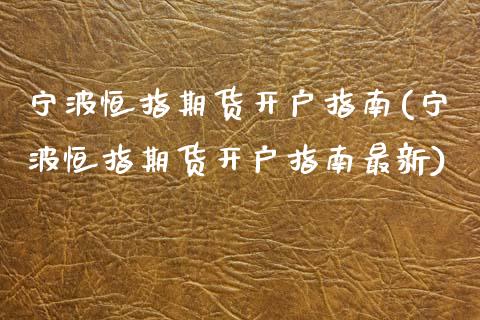 宁波恒指期货开户指南(宁
波恒指期货开户指南最新)